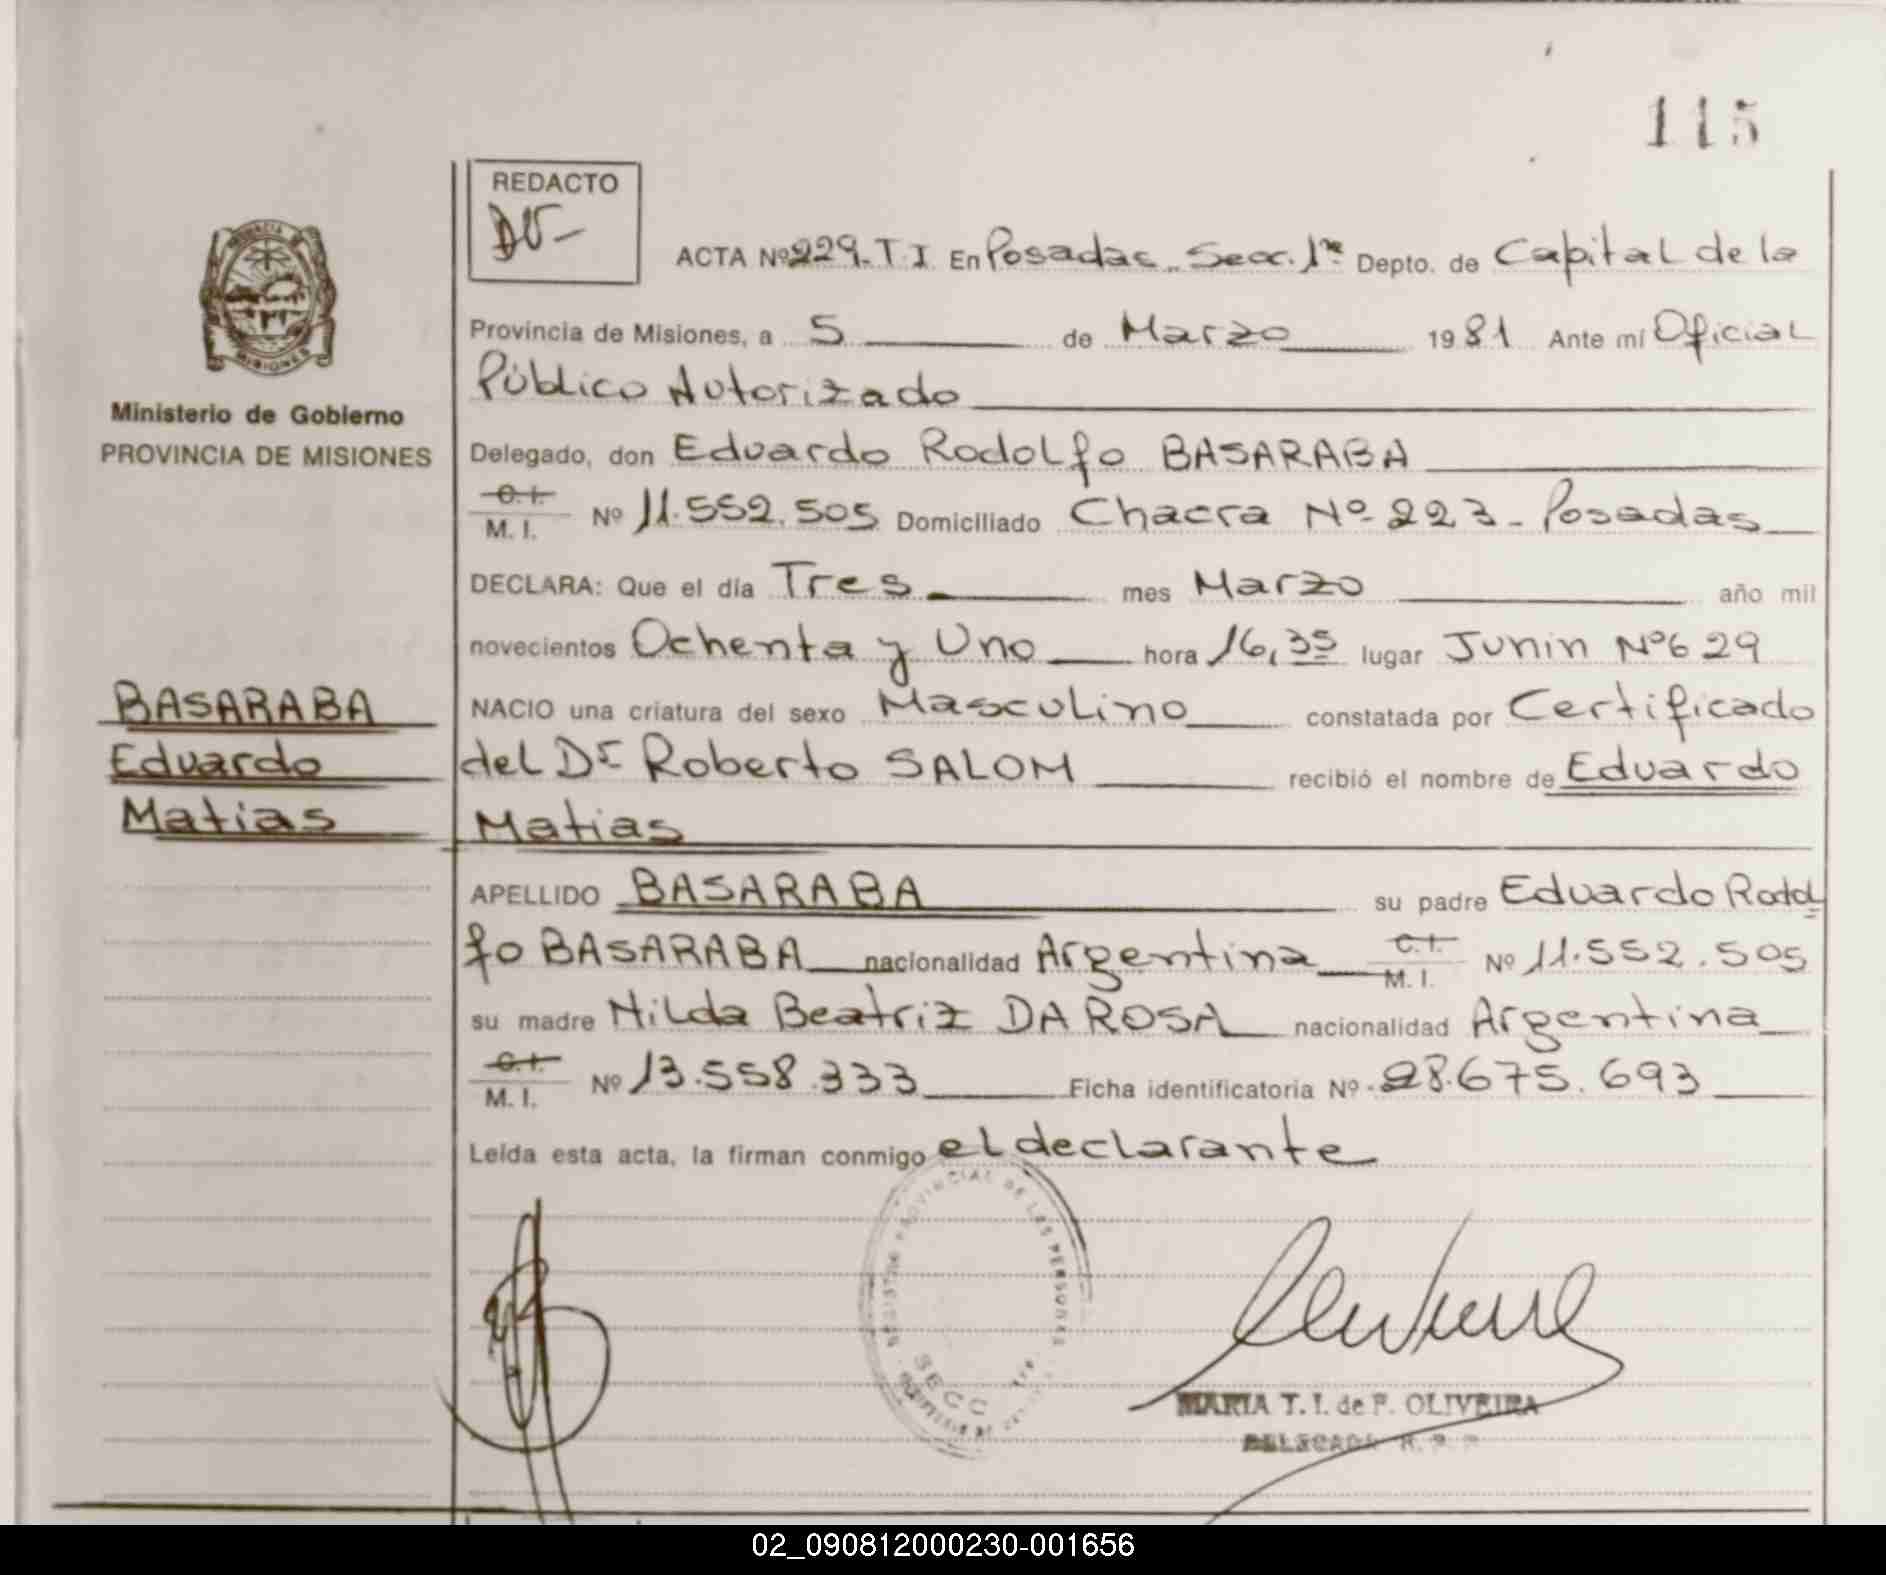 115
REDACTO
DU-
PROVINCIA DE
MISIONES
Ministerio de Gobierno
PROVINCIA DE MISIONES
ACTA Nº 229-T.I En Posadas Secc. 1ra Depto. de Capital de la
Provincia de Misiones, a 5 de Marzo 1981 Ante mí Oficial
Público Autorizado
Delegado, don Eduardo Rodolfo BASARABA
C.I.
M. I. Nº 11.552.505 Domiciliado Chacra Nº 223 - Posadas
DECLARA: Que el día Tres mes Marzo año mil
novecientos Ochenta y Uno hora 16,35 lugar Junin Nº 629
NACIO una criatura del sexo Masculino constatada por Certificado
del Dr Roberto SALOM recibió el nombre de Eduardo
Matias
BASARABA
Eduardo
Matias
APELLIDO BASARABA su padre Eduardo Rodol
fo BASARABA nacionalidad Argentina C.I.
M. I. Nº 11.552.505
su madre Nilda Beatriz DA ROSA nacionalidad Argentina
C.I.
M. I. Nº 13.558.333 Ficha identificatoria Nº 28.675.693
Leída esta acta, la firman conmigo el declarante
REGISTRO PROVINCIAL DE LAS PERSONAS
SECC 1ra
MARIA T. I. de F. OLIVEIRA
DELEGADA R. P. P.
02_090812000230-001656